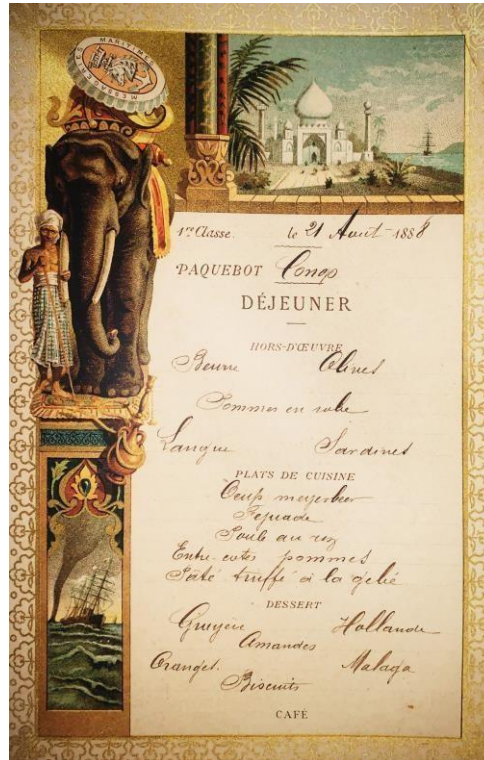 MESSAGERIES MARITIMES
1re Classe. le 21 Août 1888
PAQUEBOT Congo
DÉJEUNER
HORS-D'ŒUVRE
Beurre Olives
Pommes en robe
Langue Sardines
PLATS DE CUISINE
Oeufs meyerbeer
Poule au riz
Entre-cotes pommes
Pâté truffé à la gelée
DESSERT
Gruyère Hollande
Amandes
Oranges Malaga
Biscuits
CAFÉ